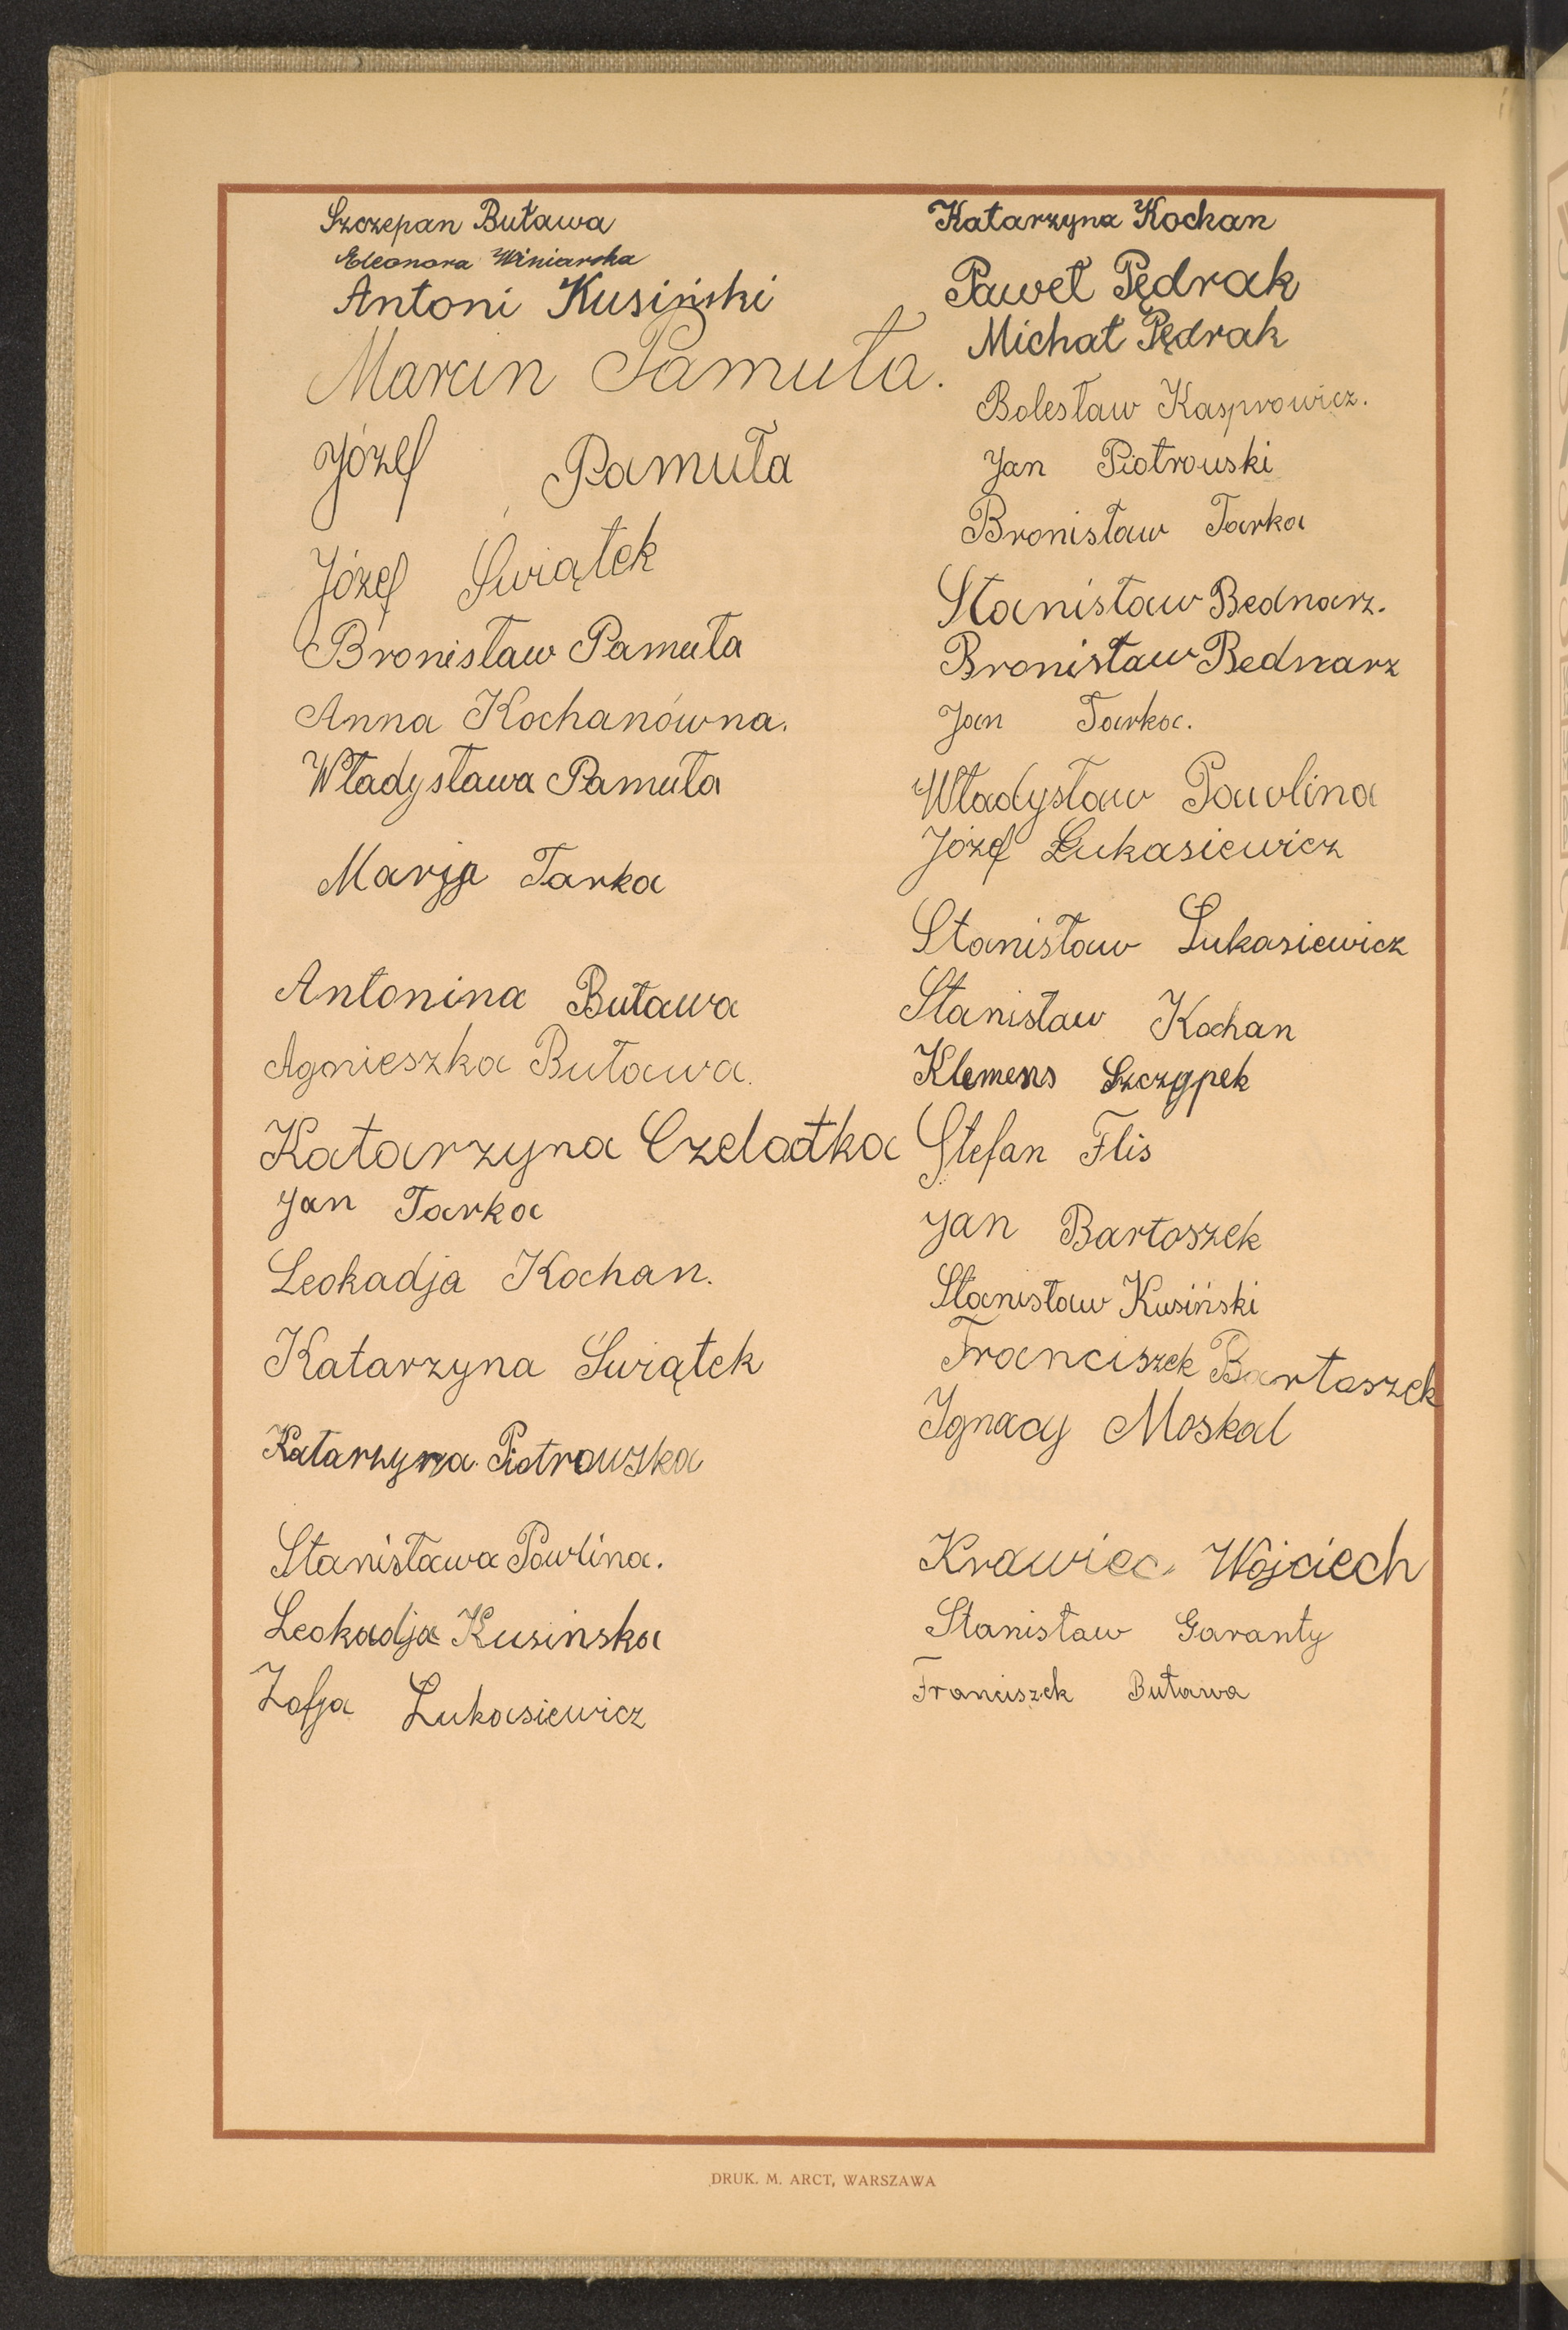 Szczepan Buława
Eleonora Winiarska
Antoni Kusiński
Marcin Pamuła.
Józef Pamuła
Józef Świątek
Bronisław Pamuła
Anna Kochanówna.
Władysława Pamuła
Marja Tarka
Antonina Buława
Agnieszka Buława.
Katarzyna Czeladka
Jan Tarka
Leokadja Kochan.
Katarzyna Świątek
Katarzyna Piotrowska
Stanisława Pawlina.
Leokadja Kusińska
Zofja Łukasiewicz
Katarzyna Kochan
Paweł Pędrak
Michał Pędrak
Bolesław Kasprowicz.
Jan Piotrowski
Bronisław Tarka
Stanisław Bednarz.
Bronisław Bednarz
Jan Tarka.
Władysław Pawlina
Józef Łukasiewicz
Stanisław Łukasiewicz
Stanisław Kochan
Klemens Szczypek
Stefan Flis
Jan Bartoszek
Stanisław Kusiński
Franciszek Bartoszek
Ignacy Moskal
Krawiec Wojciech
Stanisław Garanty
Franciszek Buława
DRUK. M. ARCT, WARSZAWA